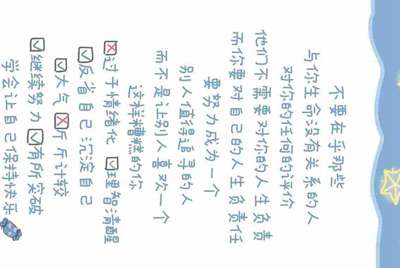 不要在乎那些
与你生命没有关系的人
对你的任何的评价
他们不需要对你的人生负责
而你要对自己的人生负责任
要努力成为一个
别人值得追寻的人
而不是让别人喜欢一个
这样糟糕的你
☒过于情绪化 ☑理智清醒
☑反省自己沉淀自己
☑大气 ☒斤斤计较
☑继续努力 ☑有所突破
学会让自己保持快乐